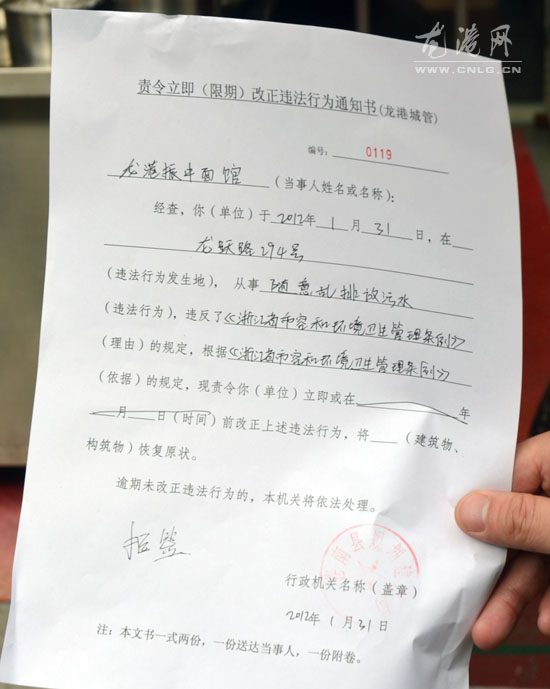 龙港网
WWW.CNLG.CN
责令立即（限期）改正违法行为通知书(龙港城管)
编号：0119
龙港振中面馆（当事人姓名或名称）：
经查，你（单位）于2012年1月31日，在
龙跃路294号
（违法行为发生地），从事随意乱排放污水
（违法行为），违反了《浙江省市容和环境卫生管理条例》
（理由）的规定，根据《浙江省市容和环境卫生管理条例》
（依据）的规定，现责令你（单位）立即或在 年
月 日（时间）前改正上述违法行为，将 （建筑物、
构筑物）恢复原状。
逾期未改正违法行为的，本机关将依法处理。
拒签
行政机关名称（盖章）
2012年1月31日
注：本文书一式两份，一份送达当事人，一份附卷。